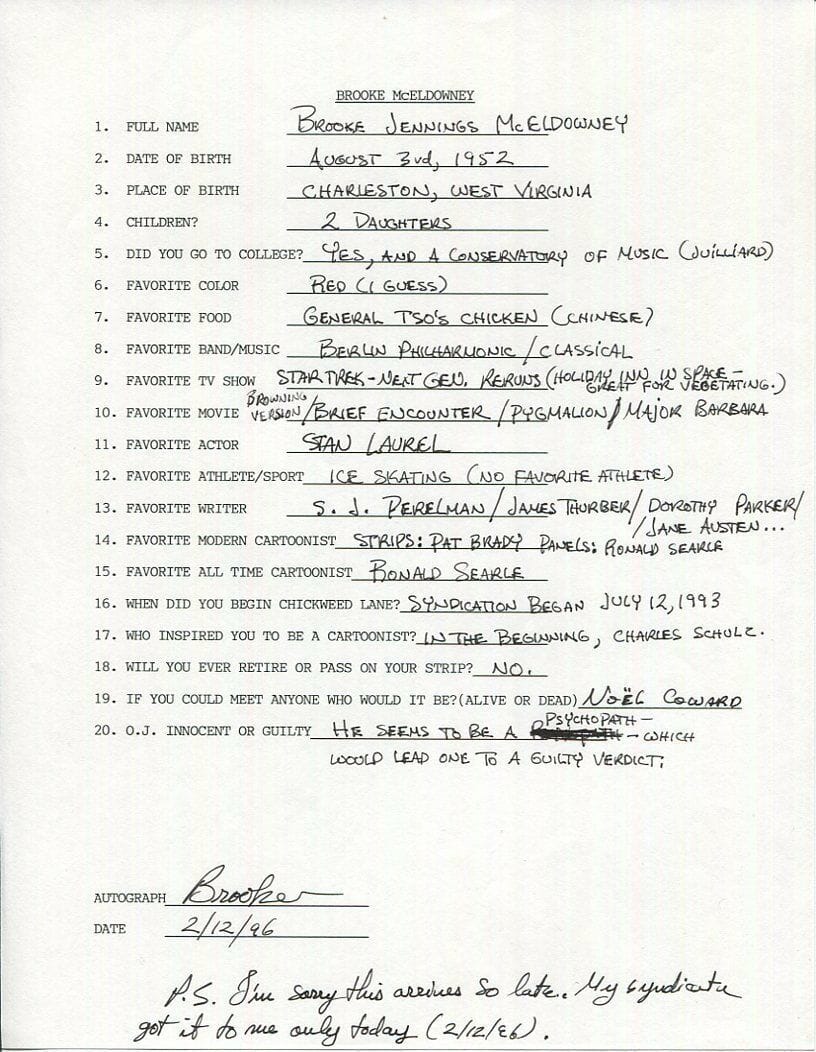 BROOKE McELDOWNEY
1. FULL NAME BROOKE JENNINGS McELDOWNEY
2. DATE OF BIRTH AUGUST 3rd, 1952
3. PLACE OF BIRTH CHARLESTON, WEST VIRGINIA
4. CHILDREN? 2 DAUGHTERS
5. DID YOU GO TO COLLEGE? YES, AND A CONSERVATORY OF MUSIC (JUILLIARD)
6. FAVORITE COLOR RED (I GUESS)
7. FAVORITE FOOD GENERAL TSO'S CHICKEN (CHINESE)
8. FAVORITE BAND/MUSIC BERLIN PHILHARMONIC / CLASSICAL
9. FAVORITE TV SHOW STAR TREK - NEXT GEN. RERUNS (HOLIDAY INN IN SPACE -
GREAT FOR VEGETATING.)
10. FAVORITE MOVIE BROWNING VERSION / BRIEF ENCOUNTER / PYGMALION / MAJOR BARBARA
11. FAVORITE ACTOR STAN LAUREL
12. FAVORITE ATHLETE/SPORT ICE SKATING (NO FAVORITE ATHLETE)
13. FAVORITE WRITER S. J. PERELMAN / JAMES THURBER / DOROTHY PARKER /
/ JANE AUSTEN...
14. FAVORITE MODERN CARTOONIST STRIPS: PAT BRADY PANELS: RONALD SEARLE
15. FAVORITE ALL TIME CARTOONIST RONALD SEARLE
16. WHEN DID YOU BEGIN CHICKWEED LANE? SYNDICATION BEGAN JULY 12, 1993
17. WHO INSPIRED YOU TO BE A CARTOONIST? IN THE BEGINNING, CHARLES SCHULZ.
18. WILL YOU EVER RETIRE OR PASS ON YOUR STRIP? NO.
19. IF YOU COULD MEET ANYONE WHO WOULD IT BE?(ALIVE OR DEAD) NOËL COWARD
20. O.J. INNOCENT OR GUILTY HE SEEMS TO BE A PSYCHOPATH - - WHICH
WOULD LEAD ONE TO A GUILTY VERDICT;
AUTOGRAPH Brooke
DATE 2/12/96
P.S. I'm sorry this arrives so late. My syndicate
got it to me only today (2/12/96).